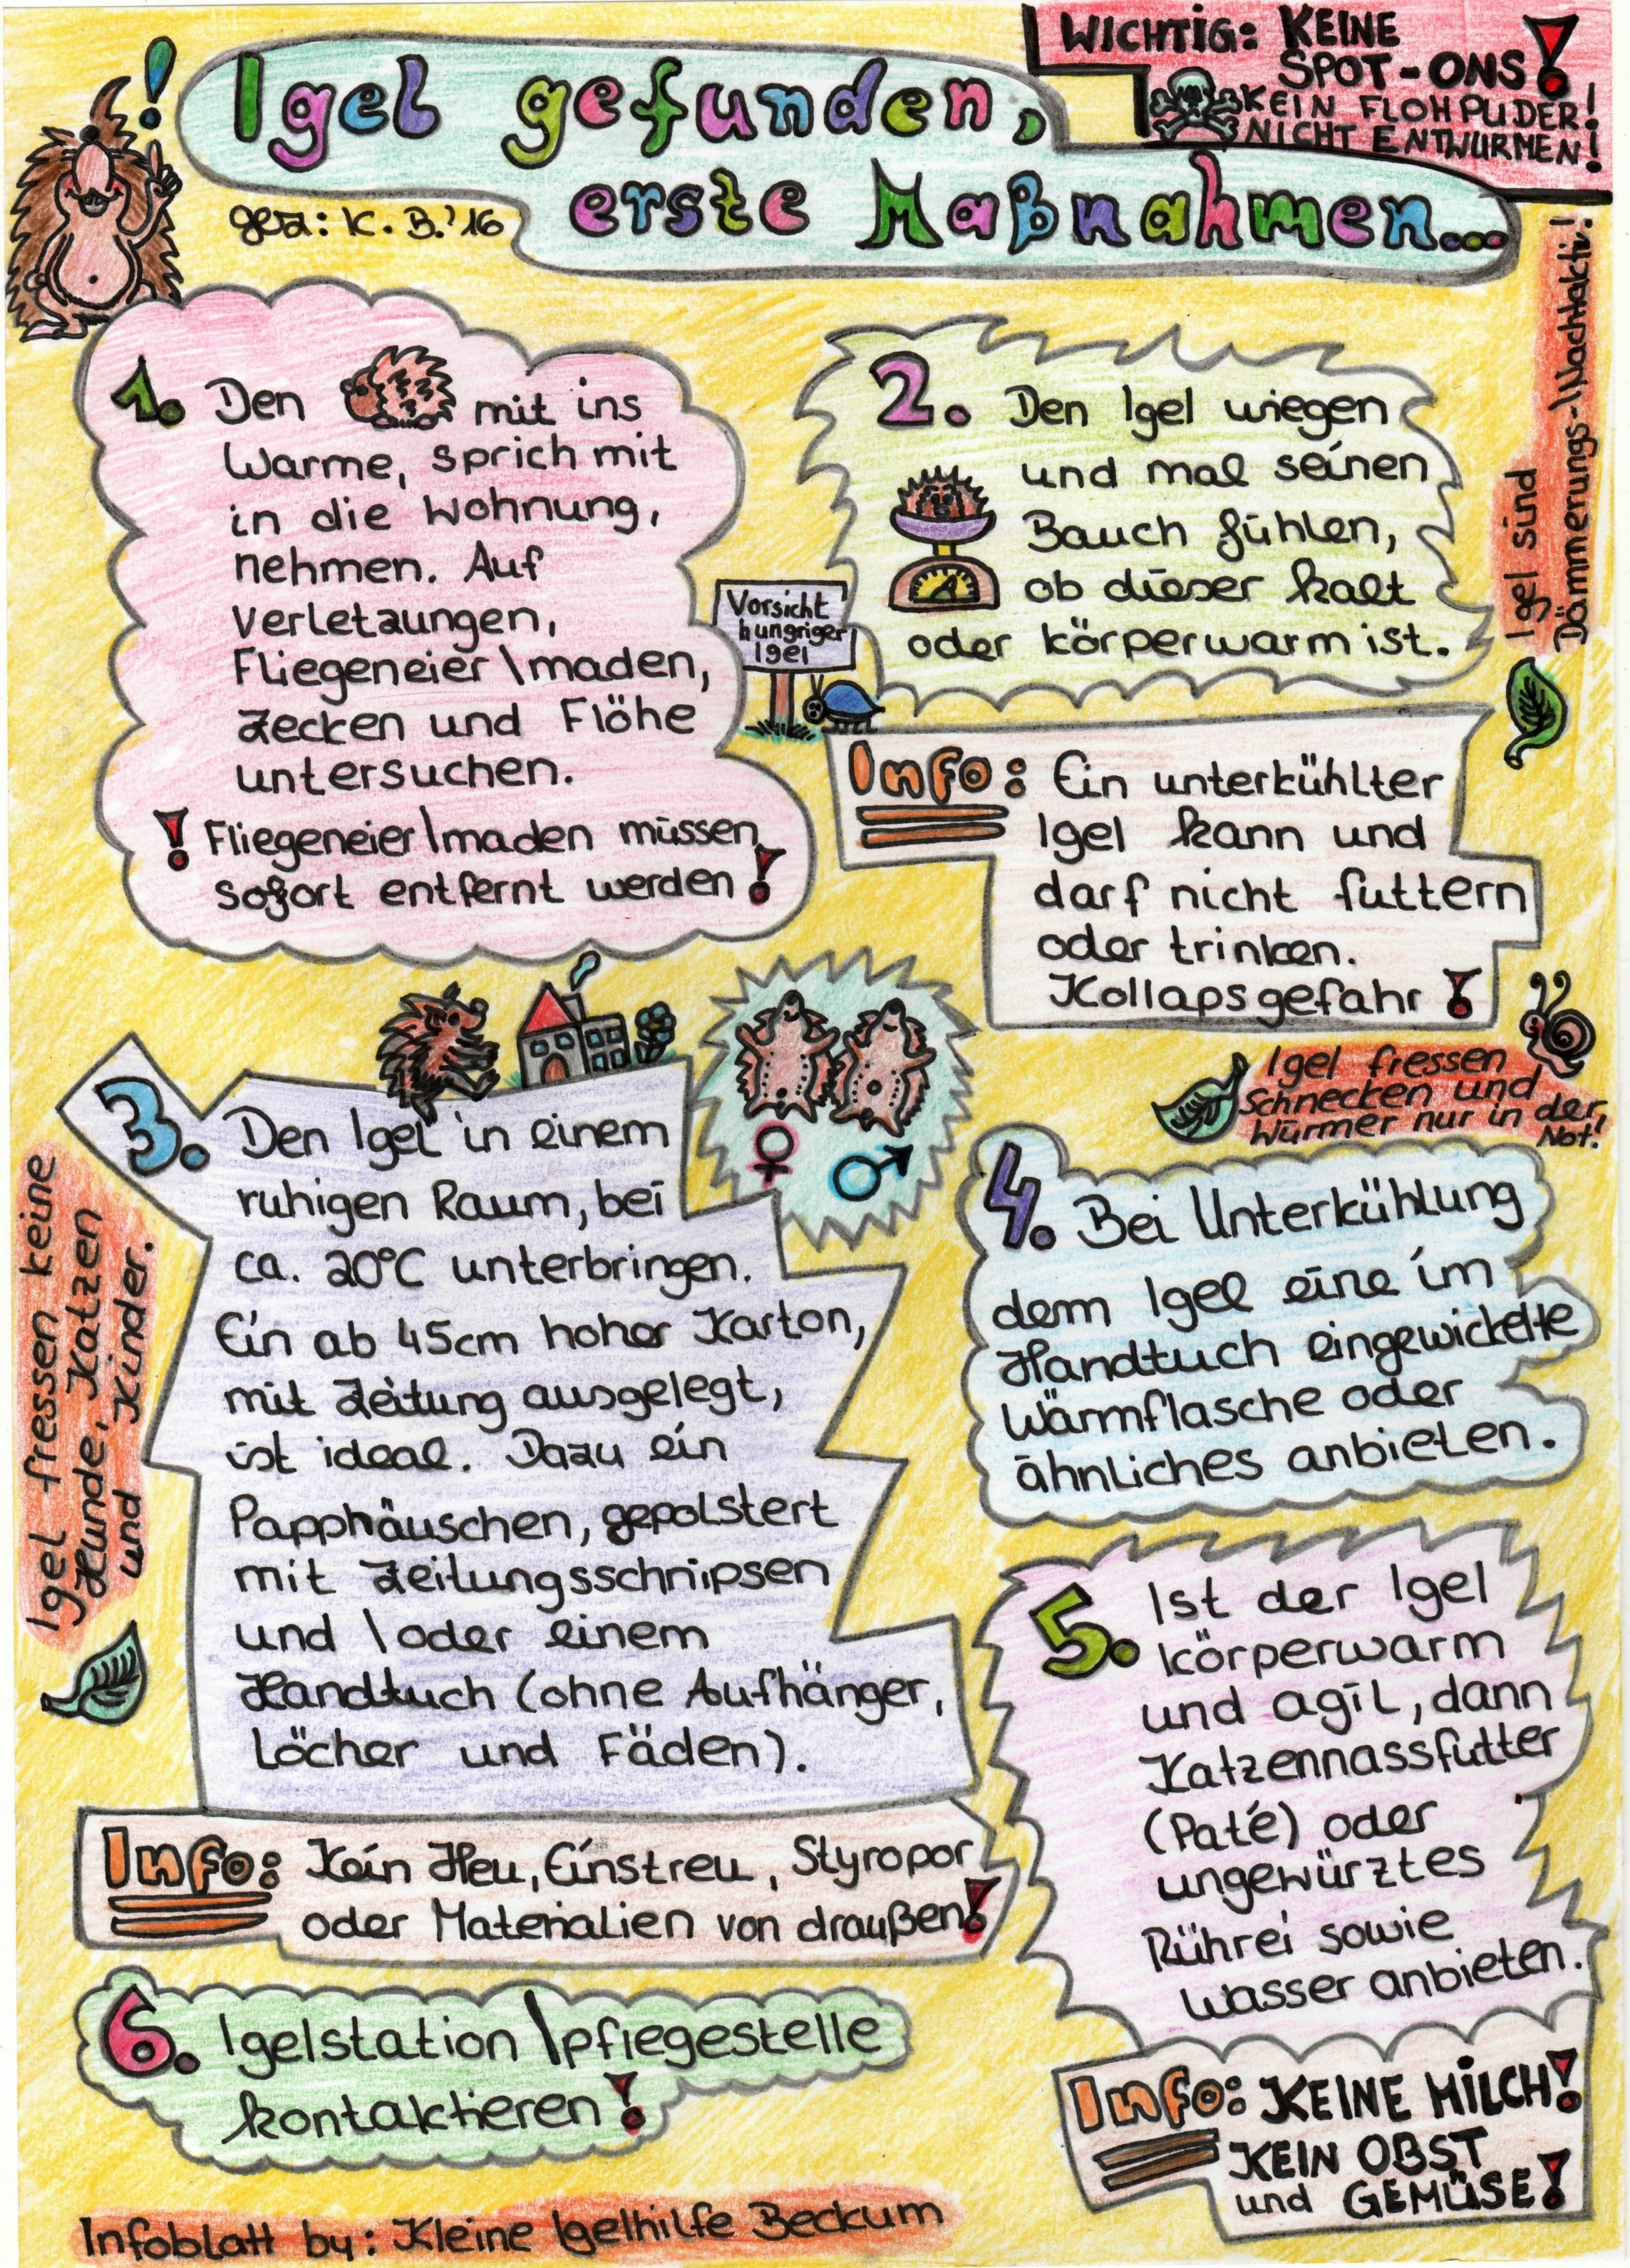 Igel gefunden,
erste Maßnahmen...
gez: K. B. '16
WICHTIG: KEINE
SPOT-ONS!
KEIN FLOHPUDER!
NICHT ENTWURMEN!
Igel sind
Dämmerungs-\Nachtaktiv!
1. Den mit ins
Warme, sprich mit
in die Wohnung,
nehmen. Auf
Verletzungen,
Fliegeneier\maden,
Zecken und Flöhe
untersuchen.
! Fliegeneier\maden müssen
sofort entfernt werden!
2. Den Igel wiegen
und mal seinen
Bauch fühlen,
ob dieser kalt
oder körperwarm ist.
Vorsicht
hungriger
Igel
Info: Ein unterkühlter
Igel kann und
darf nicht futtern
oder trinken.
Kollapsgefahr!
Igel fressen
Schnecken und
Würmer nur in der
Not!
3. Den Igel in einem
ruhigen Raum, bei
ca. 20°C unterbringen.
Ein ab 45cm hoher Karton,
mit Zeitung ausgelegt,
ist ideal. Dazu ein
Papphäuschen, gepolstert
mit Zeitungsschnipsen
und \ oder einem
Handtuch (ohne Aufhänger,
Löcher und Fäden).
♀ ♂
Igel fressen keine
Hunde, Katzen
und Kinder.
Info: Kein Heu, Einstreu, Styropor
oder Materialien von draußen!
4. Bei Unterkühlung
dem Igel eine im
Handtuch eingewickelte
Wärmflasche oder
ähnliches anbieten.
5. Ist der Igel
körperwarm
und agil, dann
Katzennassfutter
(Paté) oder
ungewürztes
Rührei sowie
Wasser anbieten.
Info: KEINE MILCH!
KEIN OBST
und GEMÜSE!
6. Igelstation \pflegestelle
kontaktieren!
Infoblatt by: Kleine Igelhilfe Beckum